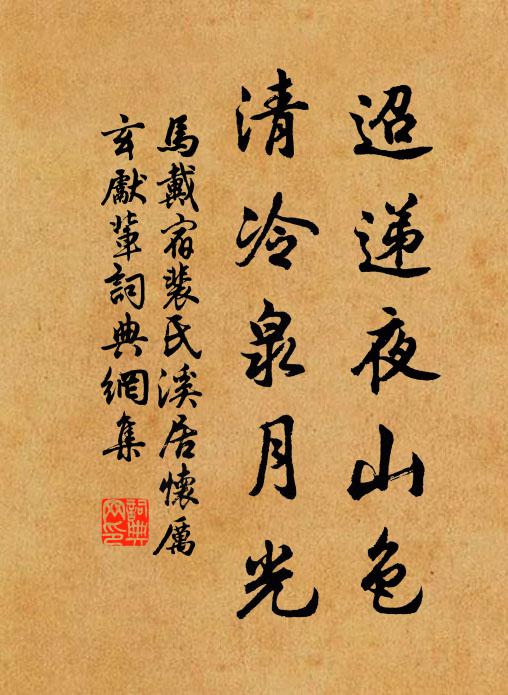 迢递夜山色
清冷泉月光
馬戴宿裴氏溪居懷厲
玄獻輩詞典網集
詞典
网印